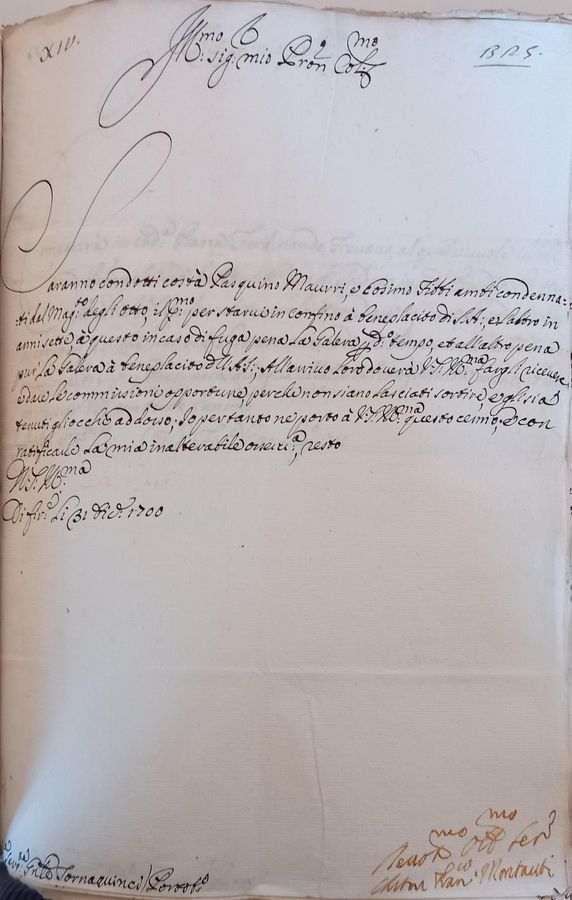 XIV.
Ill:mo Sig: mio Pron Col:mo
125.
Saranno condotti costà Pasquino Maurri, e Cosimo Titti ambi condenna-
ti dal Mag:to degli Otto, il P:mo per starvi in confino à beneplacito di S.A:, e l'altro in
anni sette à questo in caso di fuga pena La Galera p d:o tempo, et all'altro pena
pur La Galera à beneplacito di S.A.S:, All'arrivo Loro dovrà V.S. Ill:ma fargli ricevere
e dare le commissioni opportune, perche non siano lasciati sortire, e gli sia
tenuti gli occhi addosso; Io per tanto ne porto à V.S. Ill:ma questo cenno, e con
ratificarle La mia inalterabile osser:a, resto
Di V.S. Ill:ma
Di Fir:e Li 31 Dic:e 1700
Sen:re Tornaquinci / Portof:o
Devot:mo Obb:mo Ser:
Montauti